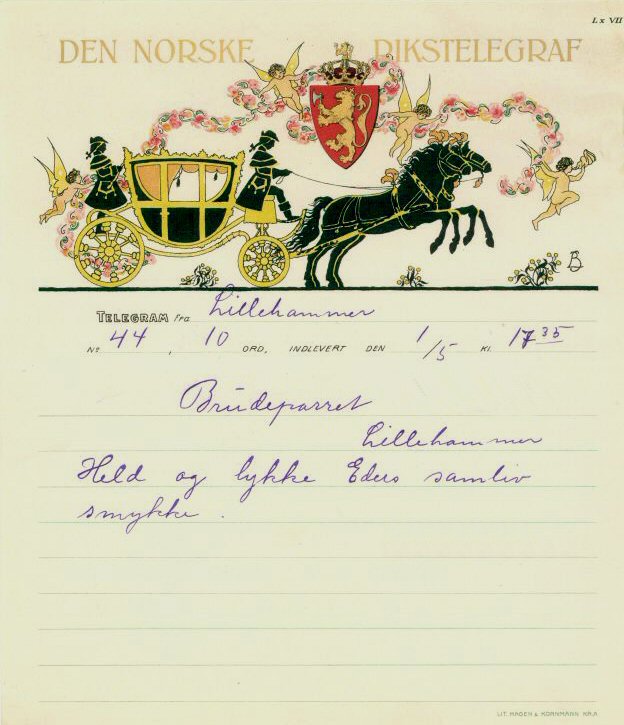 Lx VII
DEN NORSKE RIKSTELEGRAF
TELEGRAM fra Lillehammer
No 44, 10 ORD, INDLEVERT DEN 1/5 KL. 17 35
Brudeparret
Lillehammer
Held og lykke Eders samliv
smykke.
LIT. HAGEN & KORNMANN KR.A